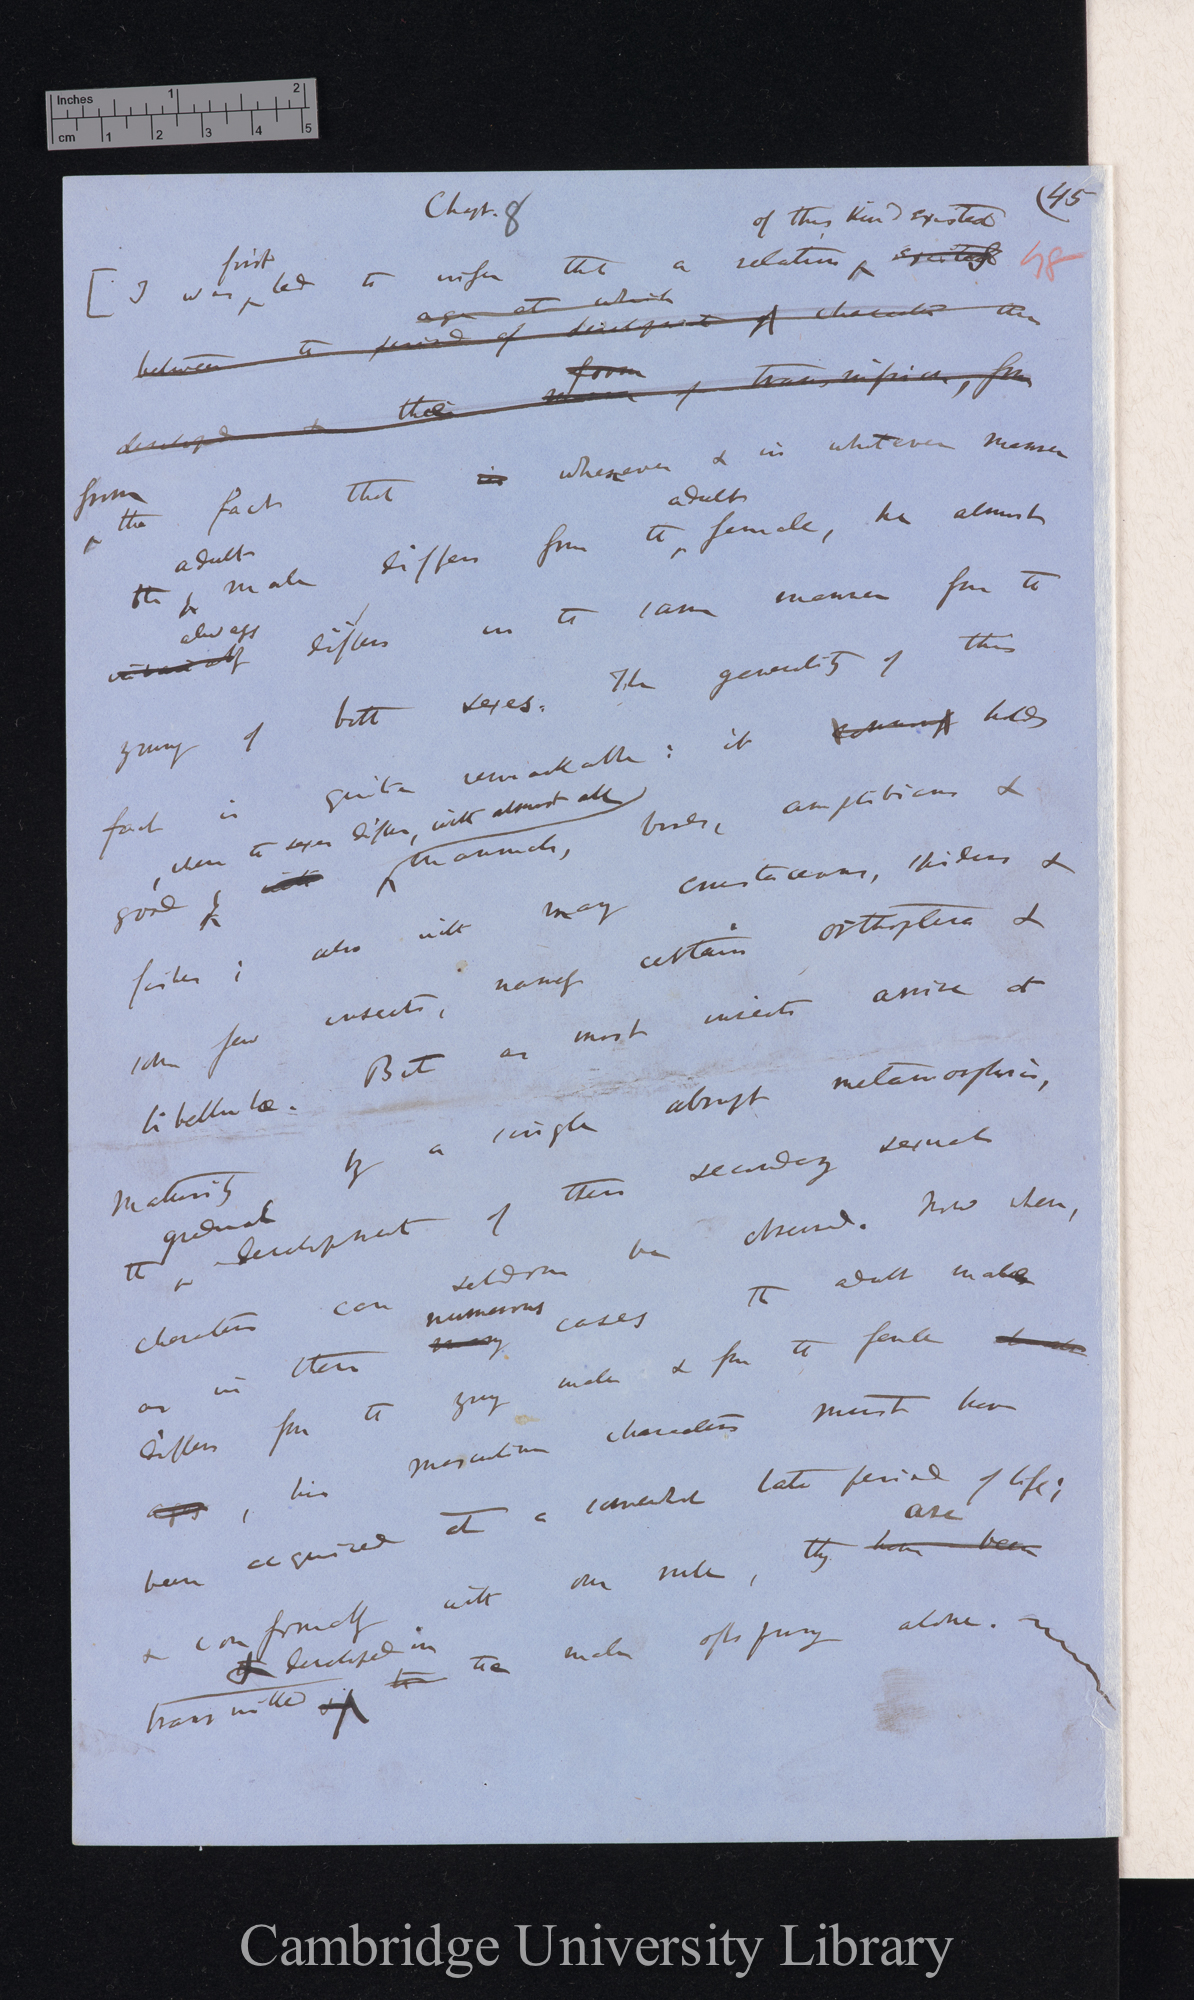 Inches 1 2
cm 1 2 3 4 5
Chapt. 8
(45
48
of this kind existed
first
[I was led to infer that a relation existed
age at which
between the period of development of character
form
developed & their manner of transmission, from
from the fact that in whenever & in whatever manner
adult adult
the male differs from the female, he almost
always
invariably differs in the same manner from the
young of both sexes. The generality of this
fact is quite remarkable: it holds
, when the sexes differ, with almost all
good with mammals, birds, amphibians &
fishes; also with many crustaceans, spiders &
some few insects, namely certain orthoptera &
libellulæ. But as most insects arrive at
maturity by a single abrupt metamorphosis,
gradual
the development of their secondary sexual
characters can seldom be observed. Now when,
numerous
as in these many cases the adult male
differs from the young male & from the female
ages, his masculine characters must have
been acquired at a somewhat late period of life;
are
& conformably with our rule, they have been
& developed in
transmitted if the the male offspring alone.
Cambridge University Library